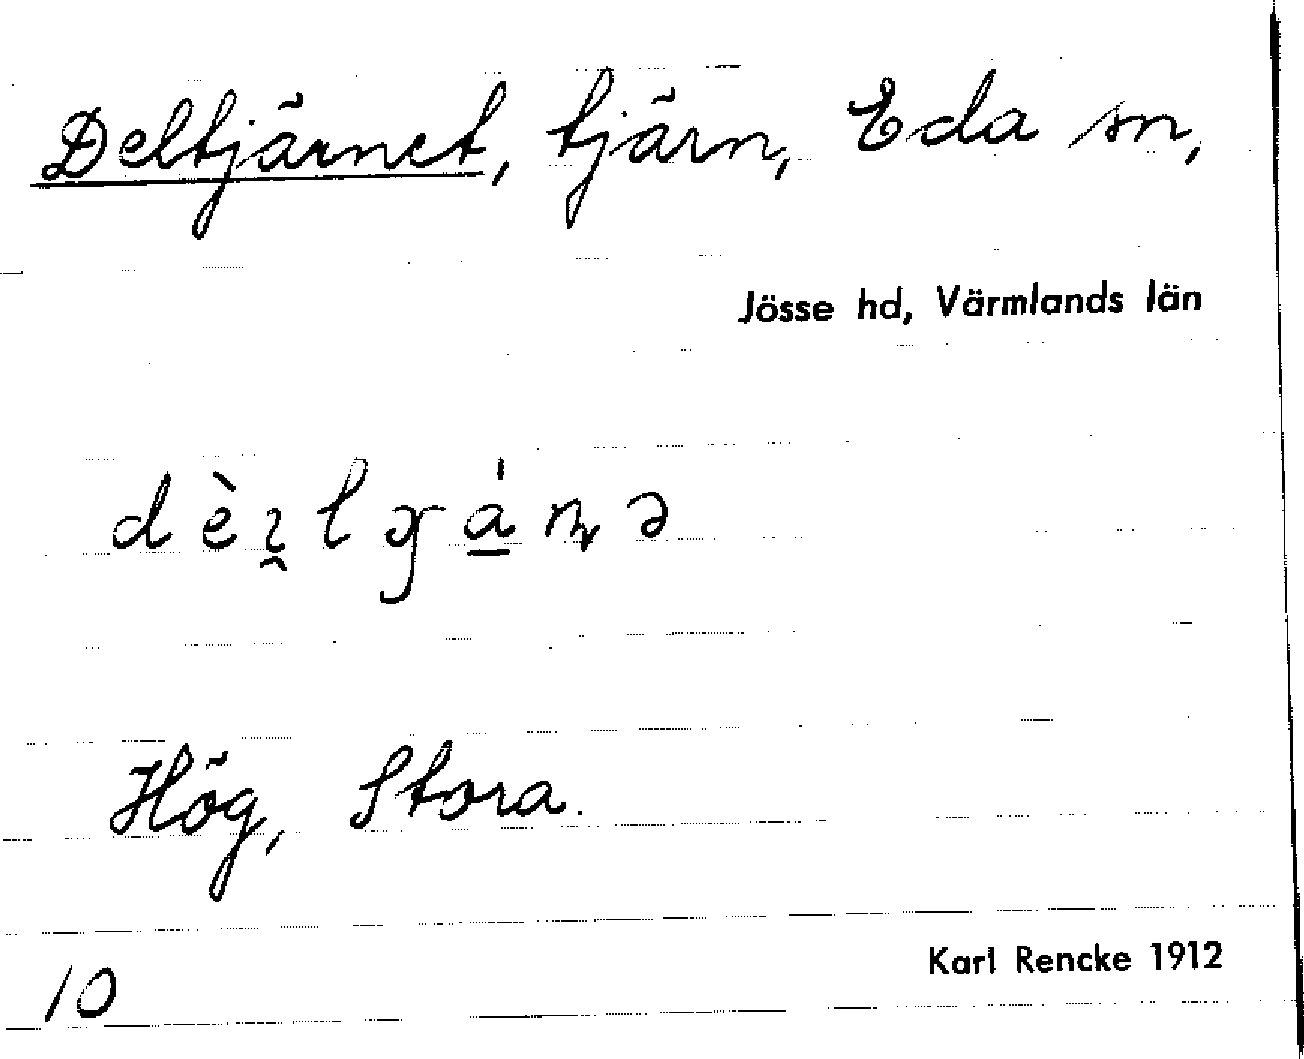 Deltjärnet, tjärn, Eda sn,
Jösse hd, Värmlands län
Hög, Stora.
Karl Rencke 1912
10